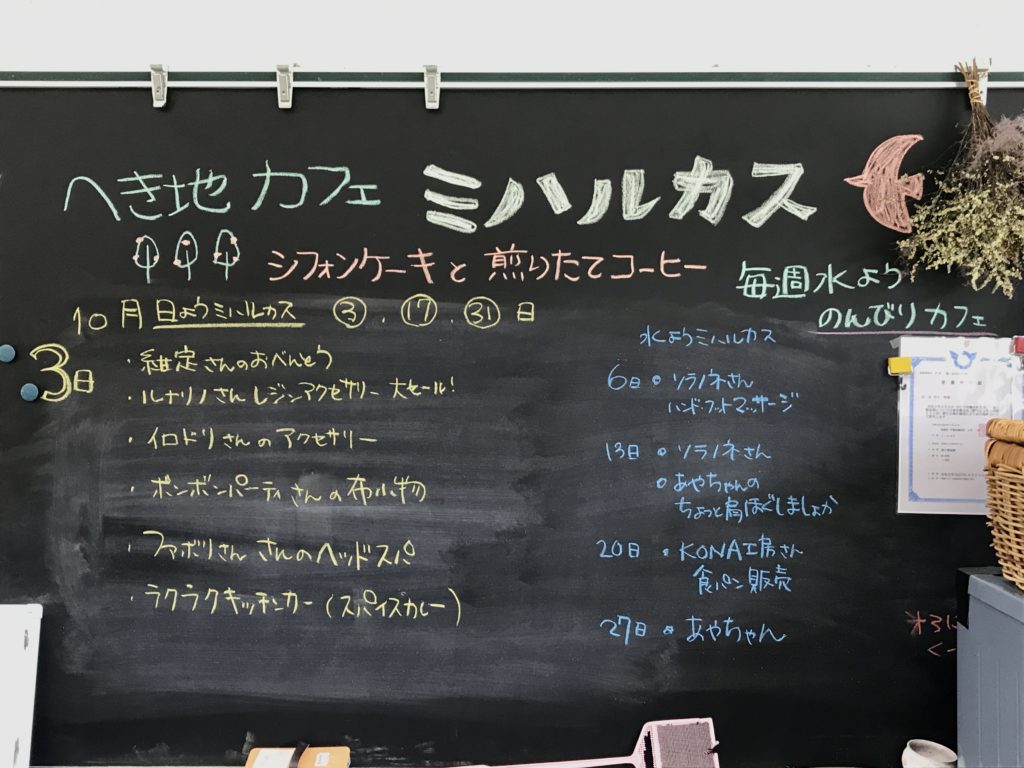 へき地 カフェ ミハルカス
シフォンケーキと 煎りたてコーヒー
毎週水よう
のんびりカフェ
10月 日ようミハルカス ③.⑰.㉛日
3日
・維定さんのおべんとう
・ルナリノさん レジンアクセサリー 大セール!
・イロドリさんのアクセサリー
・ポンポンパーティさんの布小物
・ファボリさん さんのヘッドスパ
・ラクラクキッチンカー(スパイスカレー)
水ようミハルカス
6日 ・ソラノネさん
ハンド・フットマッサージ
13日 ・ソラノネさん
・あやちゃんの
ちょっと肩ほぐしましょか
20日 ・KONA工房さん
食パン販売
27日 ・あやちゃん